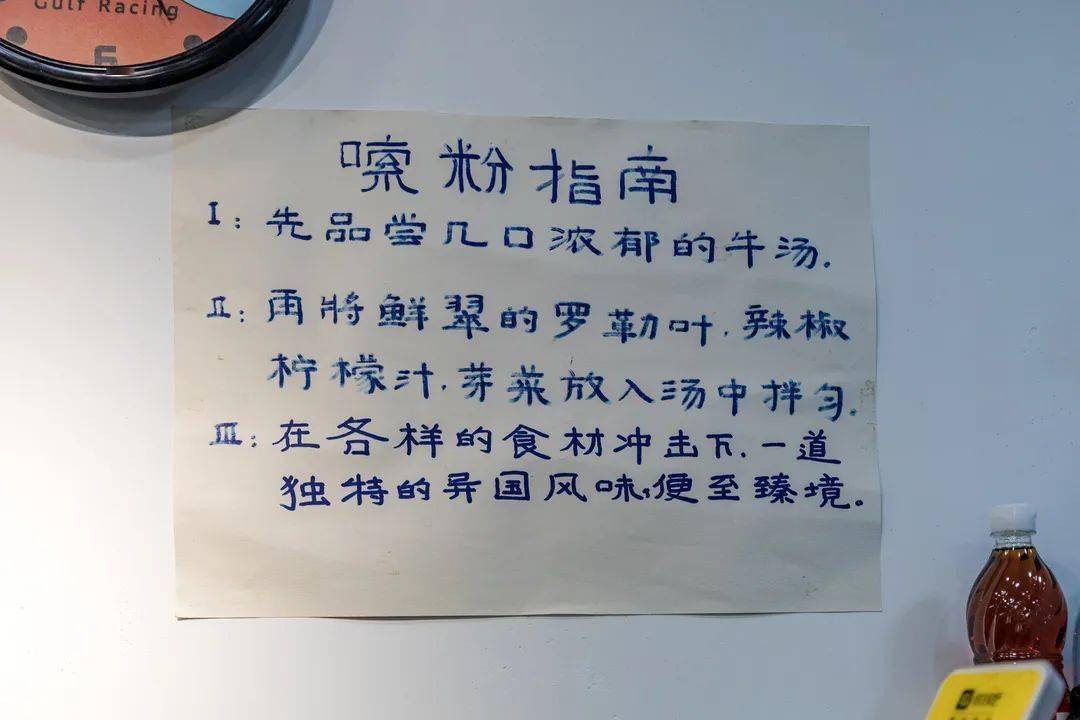 Gulf Racing
6
嗦粉指南
I：先品尝几口浓郁的牛汤.
II：再將鲜翠的罗勒叶.辣椒
柠檬汁.芽菜放入汤中拌匀.
III：在各样的食材冲击下.一道
独特的异国风味,便至臻境。